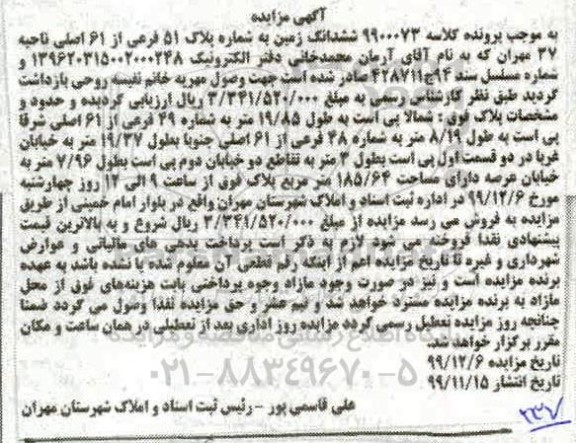 آگهی مزایده
به موجب پرونده کلاسه ۹۹۰۰۰۷۳ ششدانگ زمین به شماره پلاک ۵۱ فرعی از ۶۱ اصلی ناحیه
۳۷ مهران که به نام آقای آرمان محمدخانی دفتر الکترونیک ۱۳۹۶۲۰۳۱۵۰۰۲۰۰۰۲۴۸ و
شماره مسلسل سند ۹۴ج۴۲۸۷۱۱ صادر شده است جهت وصول مهریه خانم نفیسه روحی بازداشت
گردید طبق نظر کارشناس رسمی به مبلغ ۳/۳۴۱/۵۲۰/۰۰۰ ریال ارزیابی گردیده و حدود و
مشخصات پلاک فوق : شمالا پی است به طول ۱۹/۸۵ متر به شماره ۴۹ فرعی از ۶۱ اصلی شرقا
پی است به طول ۸/۱۹ متر به شماره ۴۸ فرعی از ۶۱ اصلی جنوبا بطول ۱۹/۳۷ متر به خیابان
غربا در دو قسمت اول پی است بطول ۳ متر به تقاطع دو خیابان دوم پی است بطول ۷/۹۶ متر به
خیابان عرصه دارای مساحت ۱۸۵/۶۴ متر مربع پلاک فوق از ساعت ۹ الی ۱۲ روز چهارشنبه
مورخ ۹۹/۱۲/۶ در اداره ثبت اسناد و املاک شهرستان مهران واقع در بلوار امام خمینی از طریق
مزایده به فروش می رسد مزایده از مبلغ ۳/۳۴۱/۵۲۰/۰۰۰ ریال شروع و به بالاترین قیمت
پیشنهادی نقدا فروخته می شود لازم به ذکر است پرداخت بدهی های مالیاتی و عوارض
شهرداری و غیره تا تاریخ مزایده اعم از اینکه رقم قطعی آن معلوم شده یا نشده باشد به عهده
برنده مزایده است و نیز در صورت وجود مازاد وجوه پرداختی بابت هزینه‌های فوق از محل
مازاد به برنده مزایده مسترد خواهد شد و نیم عشر و حق مزایده نقدا وصول می گردد ضمنا
چنانچه روز مزایده تعطیل رسمی گردد مزایده روز اداری بعد از تعطیلی در همان ساعت و مکان
مقرر برگزار خواهد شد.
تاریخ مزایده ۹۹/۱۲/۶
تاریخ انتشار ۹۹/۱۱/۱۵
۰۲۱-۸۸۳۴۹۶۷۰-۵
علی قاسمی پور - رئیس ثبت اسناد و املاک شهرستان مهران